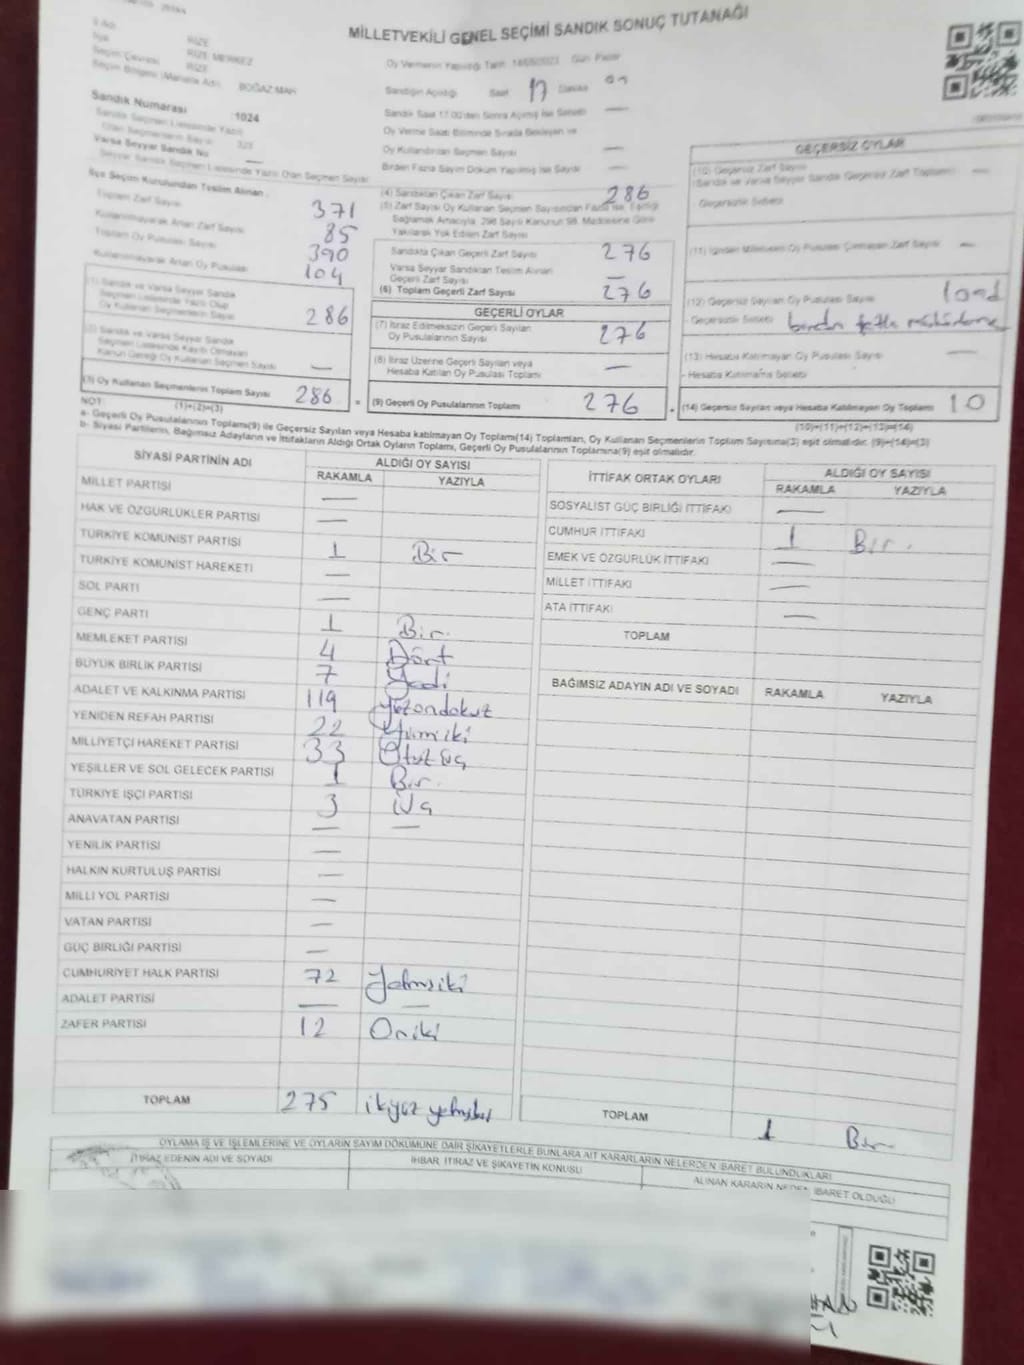 MİLLETVEKİLİ GENEL SEÇİMİ SANDIK SONUÇ TUTANAĞI
RİZE
RİZE MERKEZ
RİZE
Seçim Bölgesi (Mahalle Adı) BOĞAZ MAH
Sandık Numarası 1024
Oy Vermenin Yapıldığı Tarih 14/05/2023 Gün Pazar
Sandığın Açıldığı Saat 17 Dakika
Sandık Saat 17.00'den Sonra Açılmış İse Sebebi —
Oy Verme Saati Bitiminde Sırada Bekleyen ve
Oy Kullandırılan Seçmen Sayısı —
Birden Fazla Sayım Döküm Yapılmış İse Sayısı —
İlçe Seçim Kurulundan Teslim Alınan
Toplam Zarf Sayısı 371
Kullanılmayarak Artan Zarf Sayısı 85
Toplam Oy Pusulası Sayısı 390
Kullanılmayarak Artan Oy Pusulası 104
(1) Sandık ve Varsa Seyyar Sandık
Seçmen Listesinde Yazılı Olup
Oy Kullanan Seçmenlerin Sayısı 286
(2) Sandık ve Varsa Seyyar Sandık
Seçmen Listesinde Kayıtlı Olmayan
Kanun Gereği Oy Kullanan Seçmen Sayısı —
(3) Oy Kullanan Seçmenlerin Toplam Sayısı 286
(1)+(2)=(3)
(4) Sandıktan Çıkan Zarf Sayısı 286
(5) Zarf Sayısı Oy Kullanan Seçmen Sayısından Fazla İse, Eşitliği
Sağlamak Amacıyla, 298 Sayılı Kanunun 98. Maddesine Göre
Yakılarak Yok Edilen Zarf Sayısı
Sandıkta Çıkan Geçerli Zarf Sayısı 276
Varsa Seyyar Sandıktan Teslim Alınan
Geçerli Zarf Sayısı —
(6) Toplam Geçerli Zarf Sayısı 276
GEÇERLİ OYLAR
(7) İtiraz Edilmeksizin Geçerli Sayılan
Oy Pusulalarının Sayısı 276
(8) İtiraz Üzerine Geçerli Sayılan veya
Hesaba Katılan Oy Pusulası Toplamı —
= (9) Geçerli Oy Pusulalarının Toplamı 276
GEÇERSİZ OYLAR
(10) Geçersiz Zarf Sayısı
(Sandık ve Varsa Seyyar Sandık Geçersiz Zarf Toplamı) —
Geçersizlik Sebebi
(11) İçinden Milletvekili Oy Pusulası Çıkmayan Zarf Sayısı —
(12) Geçersiz Sayılan Oy Pusulası Sayısı
- Geçersizlik Sebebi birden fazla
(13) Hesaba Katılmayan Oy Pusulası Sayısı —
- Hesaba Katılmama Sebebi
+ (14) Geçersiz Sayılan veya Hesaba Katılmayan Oy Toplamı 10
(10)+(11)+(12)+(13)=(14)
NOT:
a- Geçerli Oy Pusulalarının Toplamı(9) ile Geçersiz Sayılan veya Hesaba katılmayan Oy Toplamı(14) Toplamları, Oy Kullanan Seçmenlerin Toplam Sayısına(3) eşit olmalıdır. (9)+(14)=(3)
b- Siyasi Partilerin, Bağımsız Adayların ve İttifakların Aldığı Ortak Oyların Toplamı, Geçerli Oy Pusulalarının Toplamına(9) eşit olmalıdır.
SİYASİ PARTİNİN ADI ALDIĞI OY SAYISI
RAKAMLA YAZIYLA
MİLLET PARTİSİ —
HAK VE ÖZGÜRLÜKLER PARTİSİ —
TÜRKİYE KOMÜNİST PARTİSİ 1 Bir
TÜRKİYE KOMÜNİST HAREKETİ —
SOL PARTİ —
GENÇ PARTİ 1 Bir.
MEMLEKET PARTİSİ 4 Dört
BÜYÜK BİRLİK PARTİSİ 7 Yedi
ADALET VE KALKINMA PARTİSİ 119 Yüzondokuz
YENİDEN REFAH PARTİSİ 22 Yirmiiki
MİLLİYETÇİ HAREKET PARTİSİ 33 Otuz üç
YEŞİLLER VE SOL GELECEK PARTİSİ 1 Bir.
TÜRKİYE İŞÇİ PARTİSİ 3 Üç
ANAVATAN PARTİSİ — —
YENİLİK PARTİSİ —
HALKIN KURTULUŞ PARTİSİ —
MİLLİ YOL PARTİSİ —
VATAN PARTİSİ —
GÜÇ BİRLİĞİ PARTİSİ —
CUMHURİYET HALK PARTİSİ 72 Yetmişiki
ADALET PARTİSİ — —
ZAFER PARTİSİ 12 Oniki
TOPLAM 275 ikiyüz yetmişbeş
İTTİFAK ORTAK OYLARI ALDIĞI OY SAYISI
RAKAMLA YAZIYLA
SOSYALİST GÜÇ BİRLİĞİ İTTİFAKI —
CUMHUR İTTİFAKI 1 Bir.
EMEK VE ÖZGÜRLÜK İTTİFAKI —
MİLLET İTTİFAKI —
ATA İTTİFAKI —
TOPLAM
BAĞIMSIZ ADAYIN ADI VE SOYADI RAKAMLA YAZIYLA
TOPLAM 1 Bir
OYLAMA İŞ VE İŞLEMLERİNE VE OYLARIN SAYIM DÖKÜMÜNE DAİR ŞİKAYETLERLE BUNLARA AİT KARARLARIN NELERDEN İBARET BULUNDUKLARI
İTİRAZ EDENİN ADI VE SOYADI İHBAR, İTİRAZ VE ŞİKAYETİN KONUSU ALINAN KARARIN NEDEN İBARET OLDUĞU